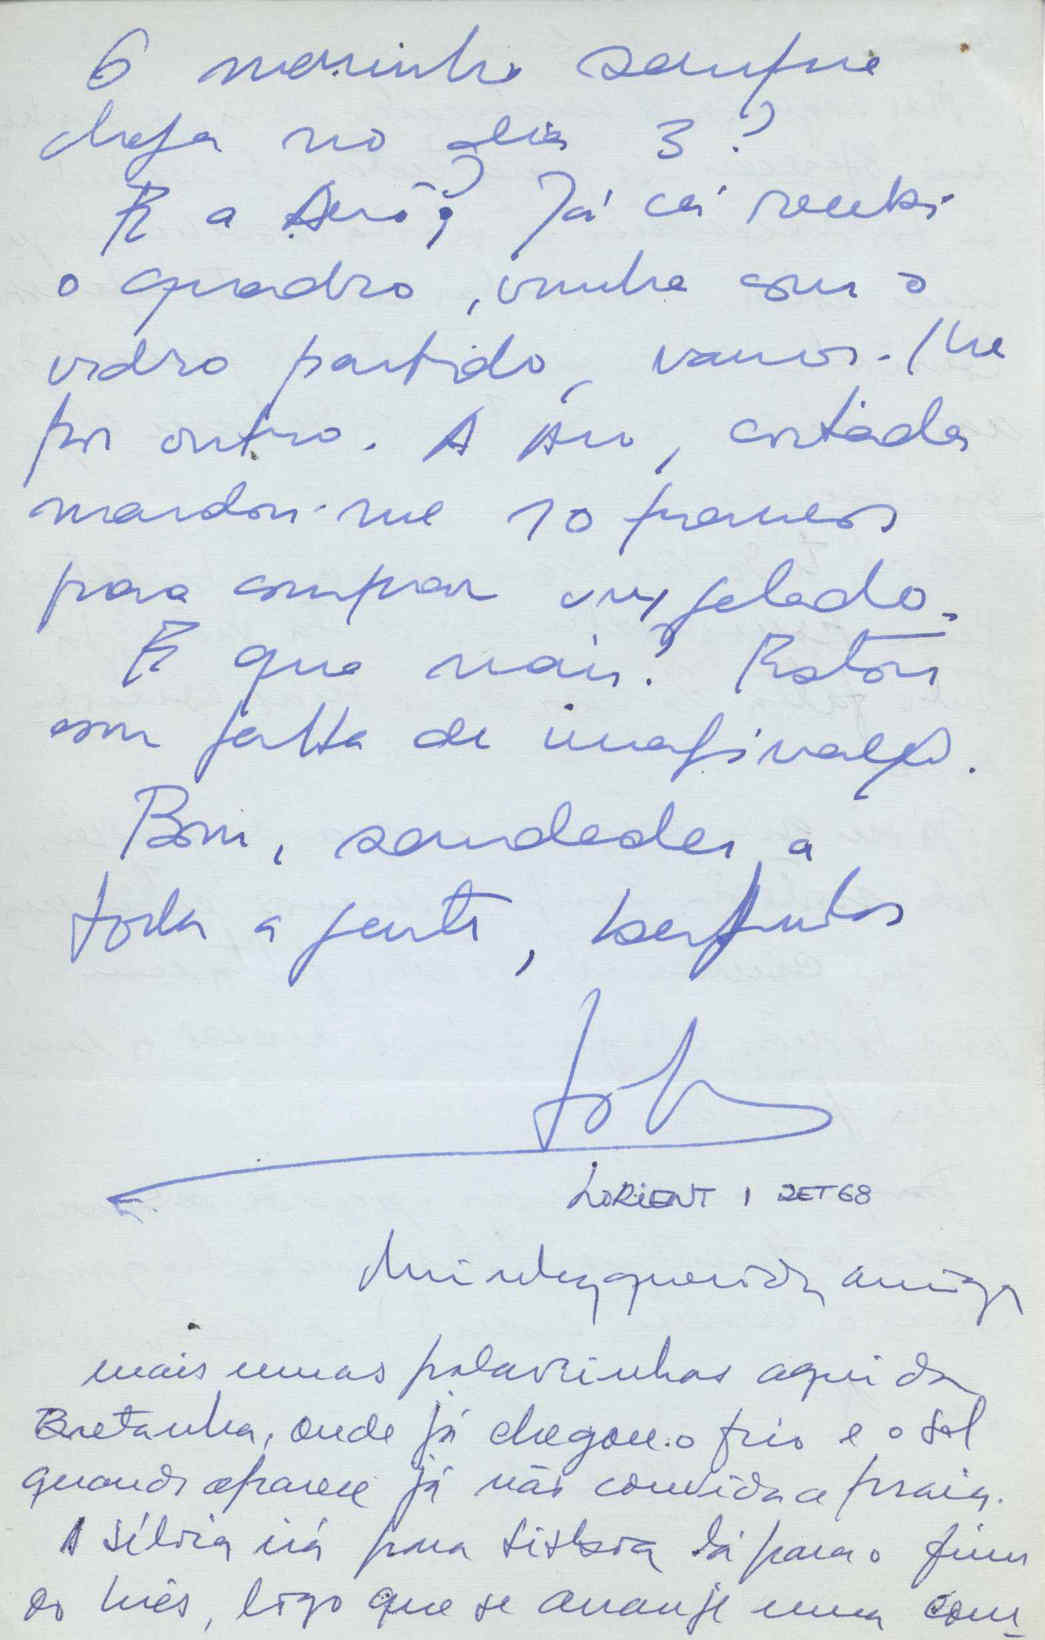 O marinho sempre
chega no dia 3?
E a Avó? Já cá recebi
o quadro, vinha com o
vidro partido, vamos-lhe
pôr outro. A Avó, coitada
mandou-me 10 francos
para comprar um gelado.
E que mais? Estou
com falta de imaginação.
Bom, saudades a
toda a gente, beijinhos
LORIENT 1 SET 68
Minha querida amiga
mais umas palavrinhas aqui da
Bretanha, onde já chegou o frio e o sol
quando aparece já não convida a praia.
A Sílvia irá para Lisboa lá para o fim
do mês, logo que se arranje uma com-